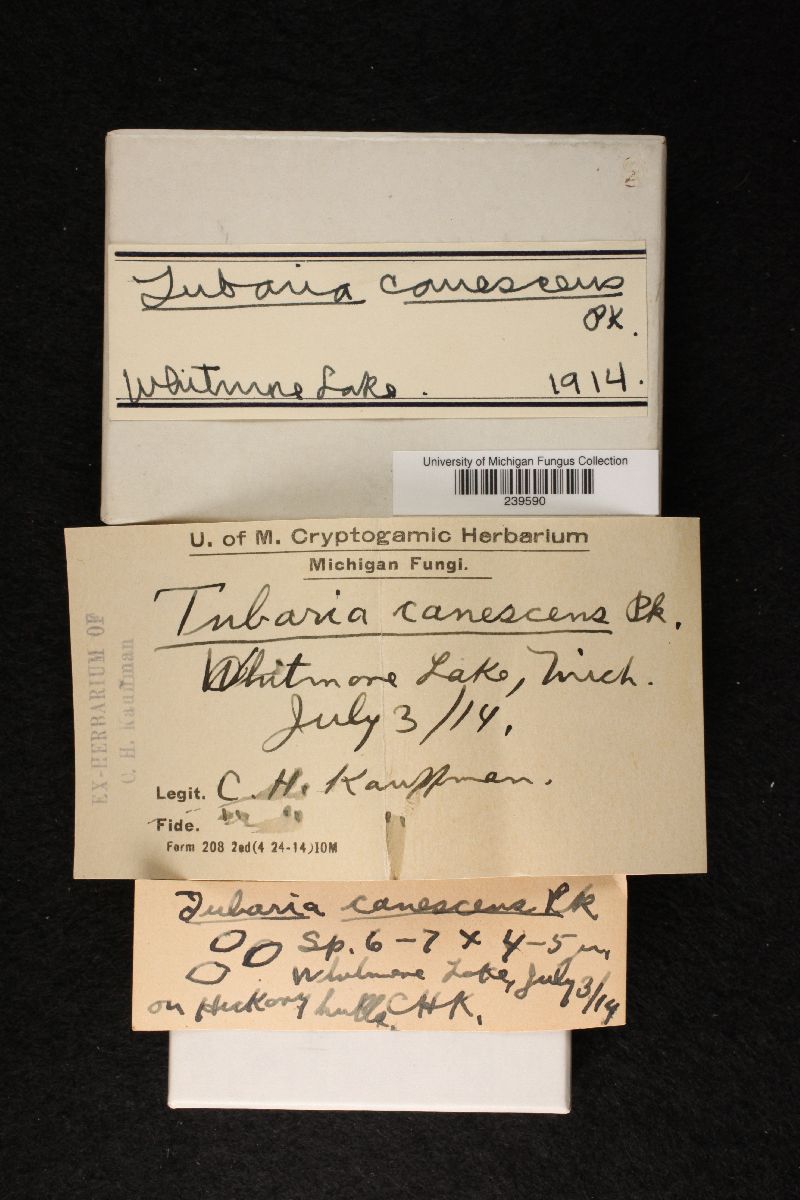 2
Tubaria canescens
Pk.
Whitmore Lake. 1914.
University of Michigan Fungus Collection
239590
U. of M. Cryptogamic Herbarium
Michigan Fungi.
Tubaria canescens Pk.
Whitmore Lake, Mich.
July 3/14.
Legit. C. H. Kauffman.
Fide. " " "
Form 208 2ed(4 24-14)10M
EX-HERBARIUM OF
C. H. Kauffman
Tubaria canescens Pk
Sp. 6-7 x 4-5 µ,
Whitmore Lake, July 3/14
on Hickory hulls. CHK.